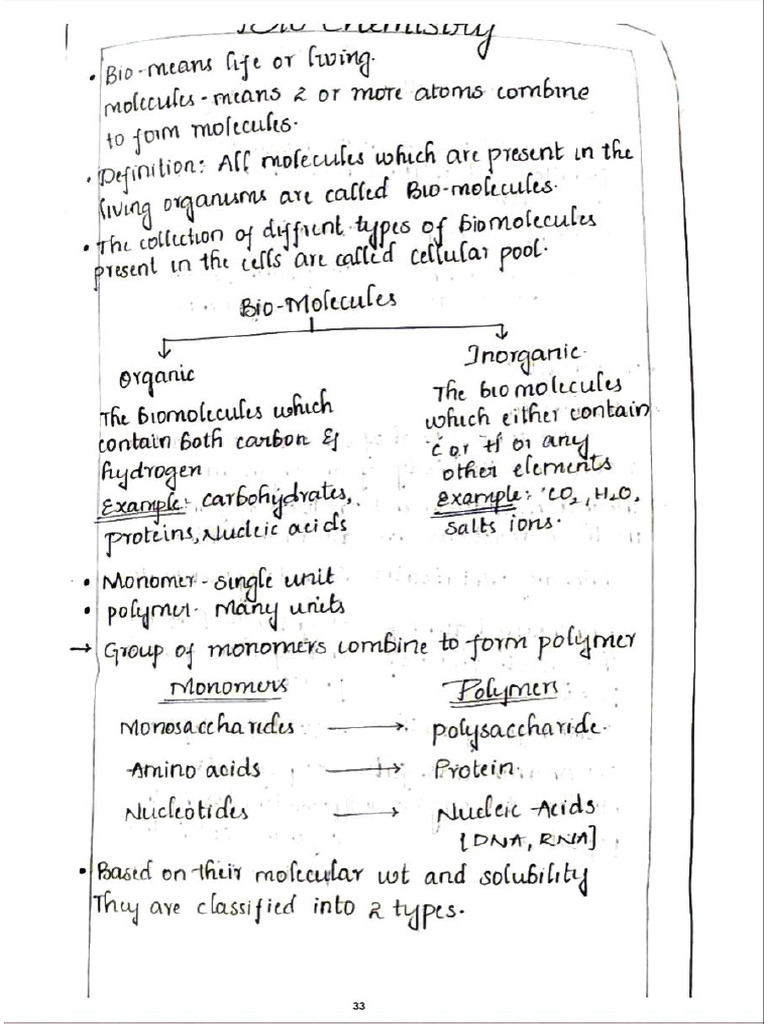 Bio Chemistry
• Bio-means life or living.
molecules-means 2 or more atoms combine
to form molecules.
• Definition: All molecules which are present in the
living organisms are called Bio-molecules.
• The collection of diffrent types of Biomolecules
present in the cells are called cellular pool.
Bio-Molecules
Organic
Inorganic.
The Biomolecules which
contain both carbon &
hydrogen
Example: carbohydrates,
proteins, Nucleic acids
The biomolecules
which either contain
C or H or any
other elements
example: CO2, H2O,
salts ions.
• Monomer - single unit
• polymer - Many units
→ Group of monomers combine to form polymer
Monomers
Polymers
Monosaccharides → polysaccharide.
Amino acids → Protein
Nucleotides → Nucleic Acids
[DNA, RNA]
• Based on their molecular wt and solubility
They are classified into 2 types.
33